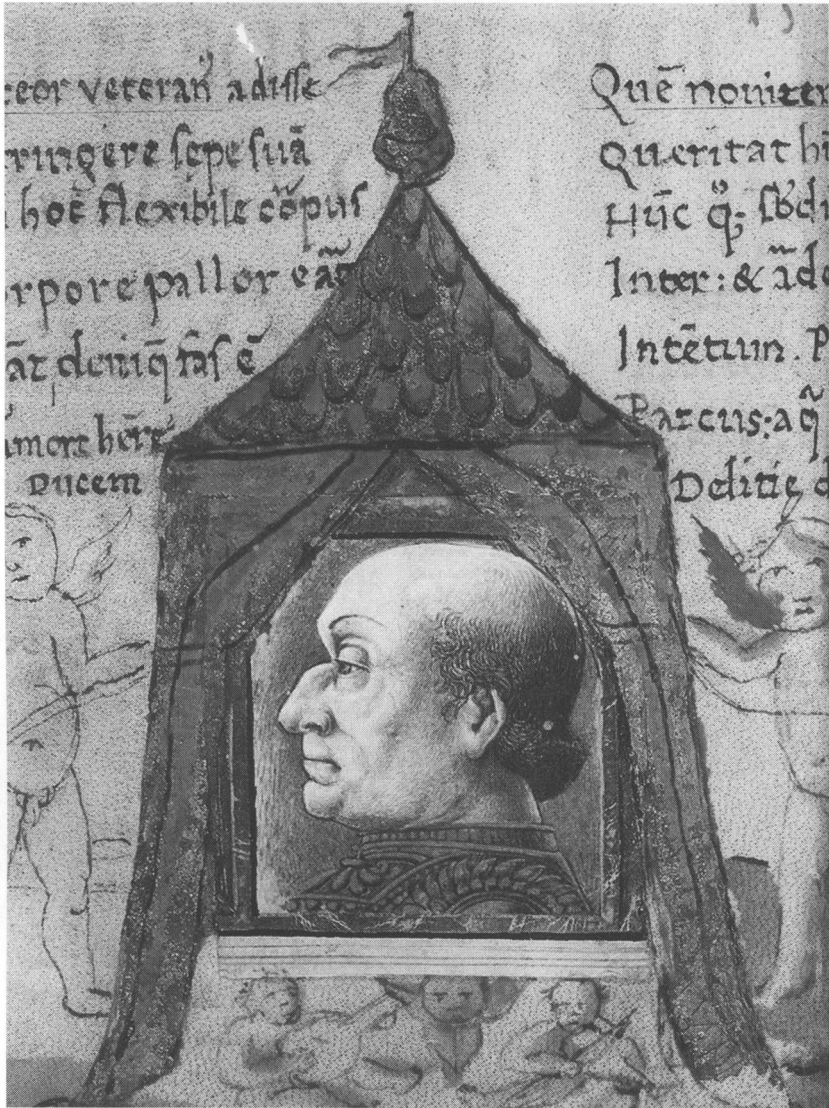 teor veteran᷒ adisse
tringere sępe suā
hoc̄ flexibile cōpus
orpore pallor eāt
āt deniq̄ fas ē
amore hēre
Ducem
15
Quē nouiter
Queritat hi
Hūc q̄;
Inter: & ād
Intētum. P
Parcus; a q̄
Delitię d